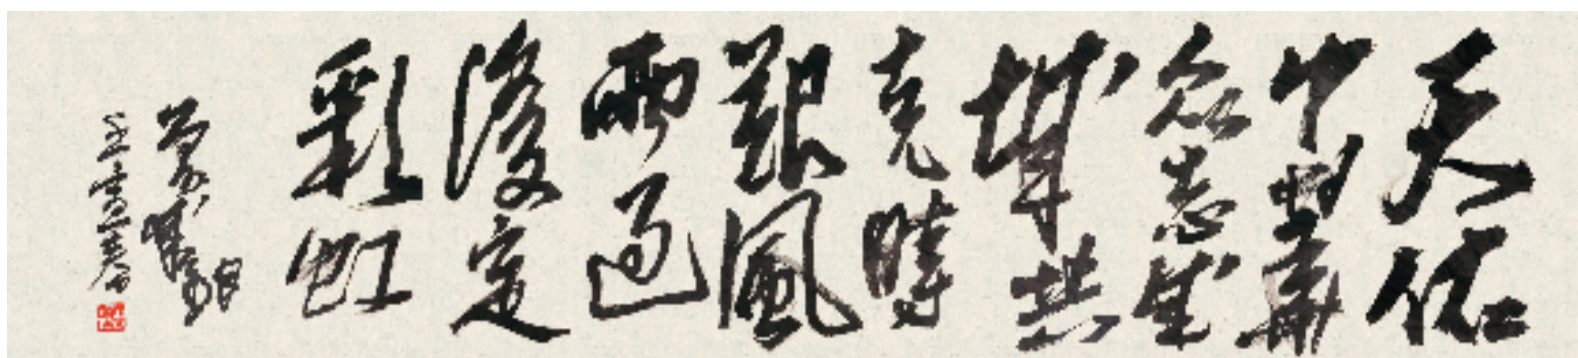 天佑
中華
众志成
城共
克時
艱風
雨過
後定
彩虹